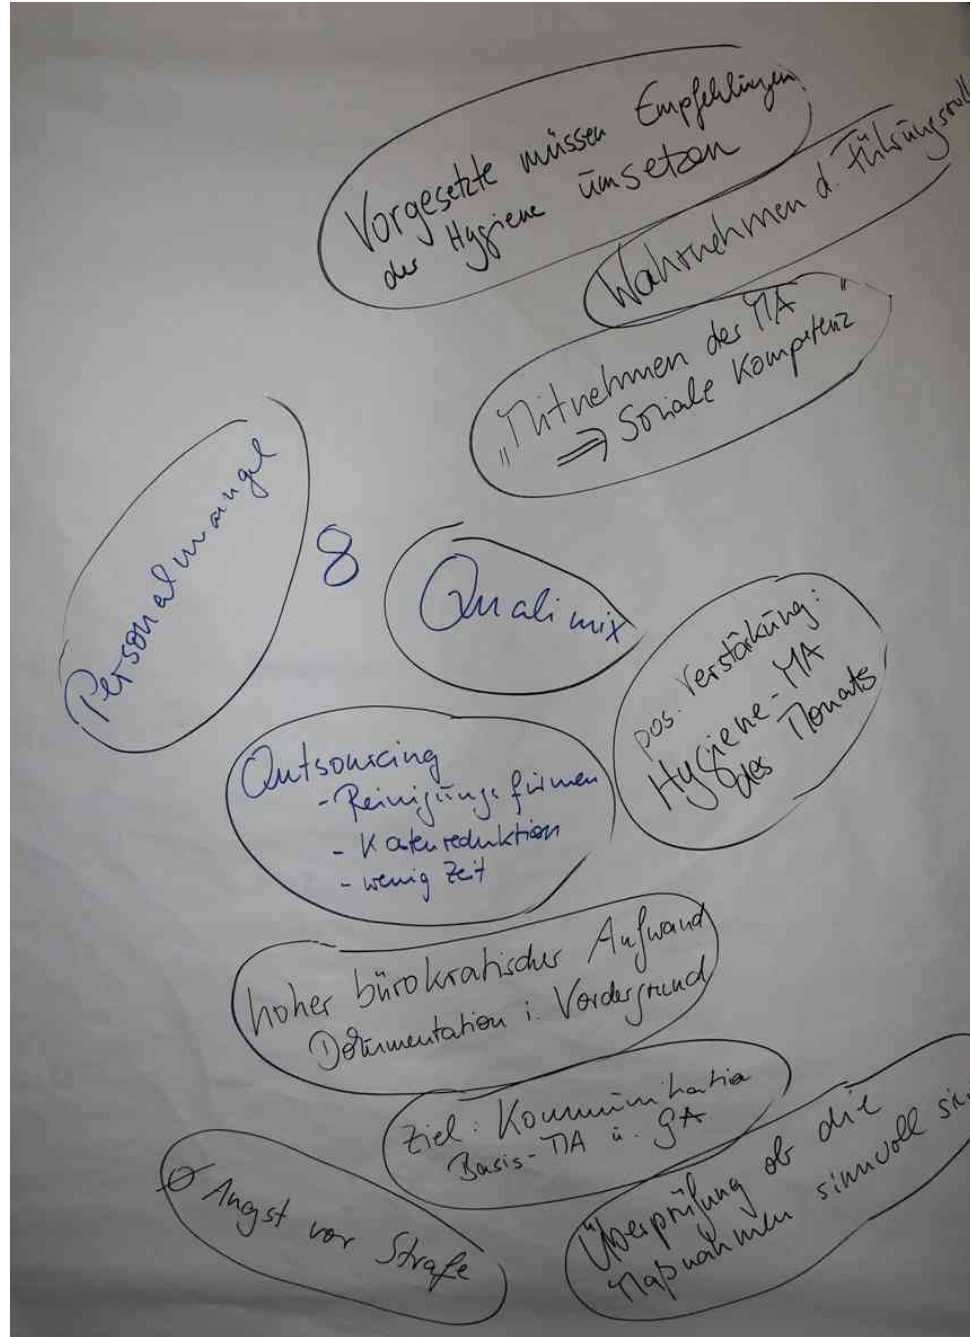 Vorgesetzte müssen Empfehlungen
der Hygiene umsetzen
Wahrnehmen d. Führungsroll
"Mitnehmen des MA"
"⇒ Soziale Kompetenz
Personalmangel
8
Qualimix
pos. Verstärkung:
Hygiene-MA
des Monats
Outsourcing
- Reinigungsfirmen
- Kostenreduktion
- wenig Zeit
hoher bürokratischer Aufwand
Dokumentation i. Vordergrund
Ziel: Kommunikation
Basis-MA u. GA
Ø Angst vor Strafe
Überprüfung ob die
Maßnahmen sinnvoll sin